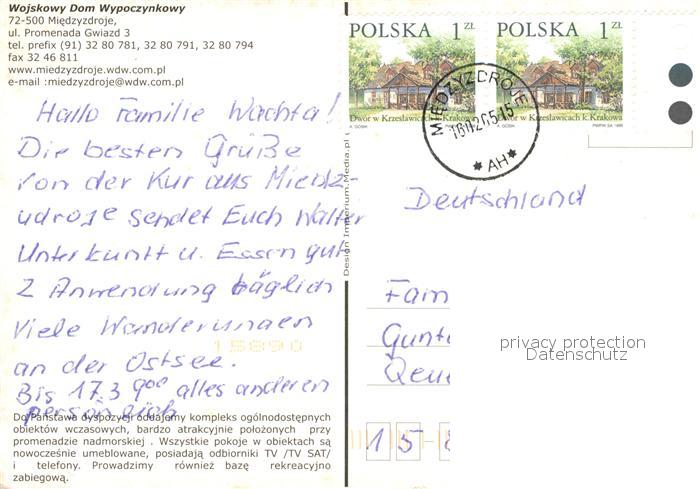 Wojskowy Dom Wypoczynkowy
72-500 Międzyzdroje,
ul. Promenada Gwiazd 3
tel. prefix (91) 32 80 781, 32 80 791, 32 80 794
fax 32 46 811
www.miedzyzdroje.wdw.com.pl
e-mail :miedzyzdroje@wdw.com.pl
Hallo Familie Wachta!
Die besten Grüße
von der Kur aus Miedz-
udroje sendet Euch Walter
Unterkunft u. Essen gut
2 Anwendung täglich
Viele Wanderungen
an der Ostsee.
Bis 17.3 9⁰⁰ alles anderen
persönlich
15890
Do Państwa dyspozycji oddajemy kompleks ogólnodostępnych
obiektów wczasowych, bardzo atrakcyjnie położonych przy
promenadzie nadmorskiej . Wszystkie pokoje w obiektach są
nowocześnie umeblowane, posiadają odbiorniki TV /TV SAT/
i telefony. Prowadzimy również bazę rekreacyjno
zabiegową.
Design Imperium.Media.pl
POLSKA 1 ZŁ
Dwór w Krzesławicach k. Krakowa
POLSKA 1 ZŁ
Dwór w Krzesławicach k. Krakowa
MIĘDZYZDROJE
* AH *
Deutschland
Fam
Gunt
privacy protection
Datenschutz
15